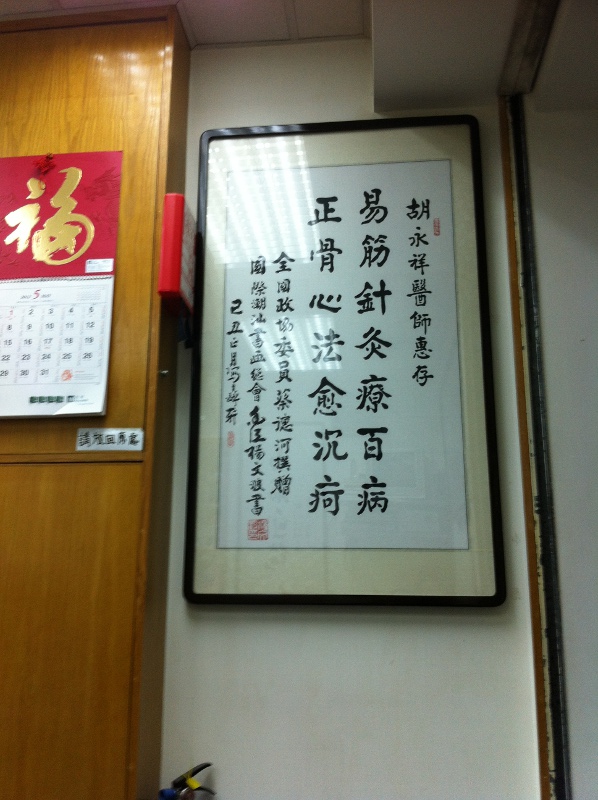 胡永祥醫師惠存
易筋針灸療百病
正骨心法愈沉疴
全國政協委員蔡德河撰贈
國際潮汕書畫總會 楊文 書
己丑正月
福
5
1
2 3 4 5
8 9 10 11 12
15 16 17 18 19
22 23 24 25 26
29 30 31
請隨回原處